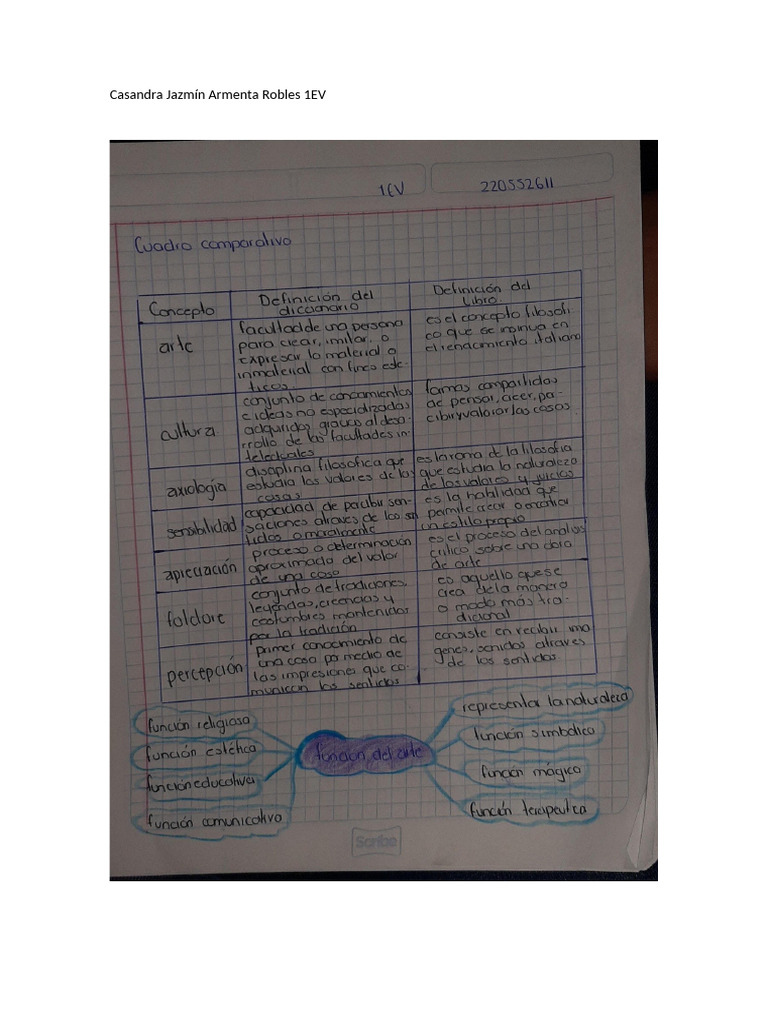 Casandra Jazmín Armenta Robles 1EV
1EV
220552611
Cuadro comparativo
Concepto
Definición del
diccionario
Definición del
Libro
arte
facultad de una persona
para crear, imitar o
expresar lo material o
inmaterial con fines esté-
ticos.
es el concepto filosofi-
co que se
en
el renacimiento italiano
cultura
conjunto de conocimientos
e ideas no especializadas
adquiridos gracias al desa-
rrollo de las facultades in-
telectuales
formas compartidas
de pensar, creer, per-
cibir y valorar las cosas.
axiología
disciplina filosofica que
estudia los valores de las
cosas
es la rama de la filosofia
que estudia la naturaleza
de los valores y juicios
sensibilidad
capacidad de percibir sen-
saciones atraves de los sen
tidos o moralmente
es la habilidad que
permite crear o
un estilo propio
apreciación
proceso o determinación
aproximada del valor
de una cosa
es el proceso del analisis
critico sobre una obra
de arte
foldore
conjunto de tradiciones,
leyendas, creencias y
costumbres mantenidas
por la tradición
es aquello que se
crea de la manera
o modo más tra-
dicional
percepción
primer conocimiento de
una cosa por medio de
las impresiones que co-
munican los sentidos
consiste en recibir ima
genes, sonidos atraves
de los sentidos
función del arte
función religiosa
función estética
función educativa
función comunicativa
representar la naturaleza
función simbolica
función mágica
función terapeutica
Scribe